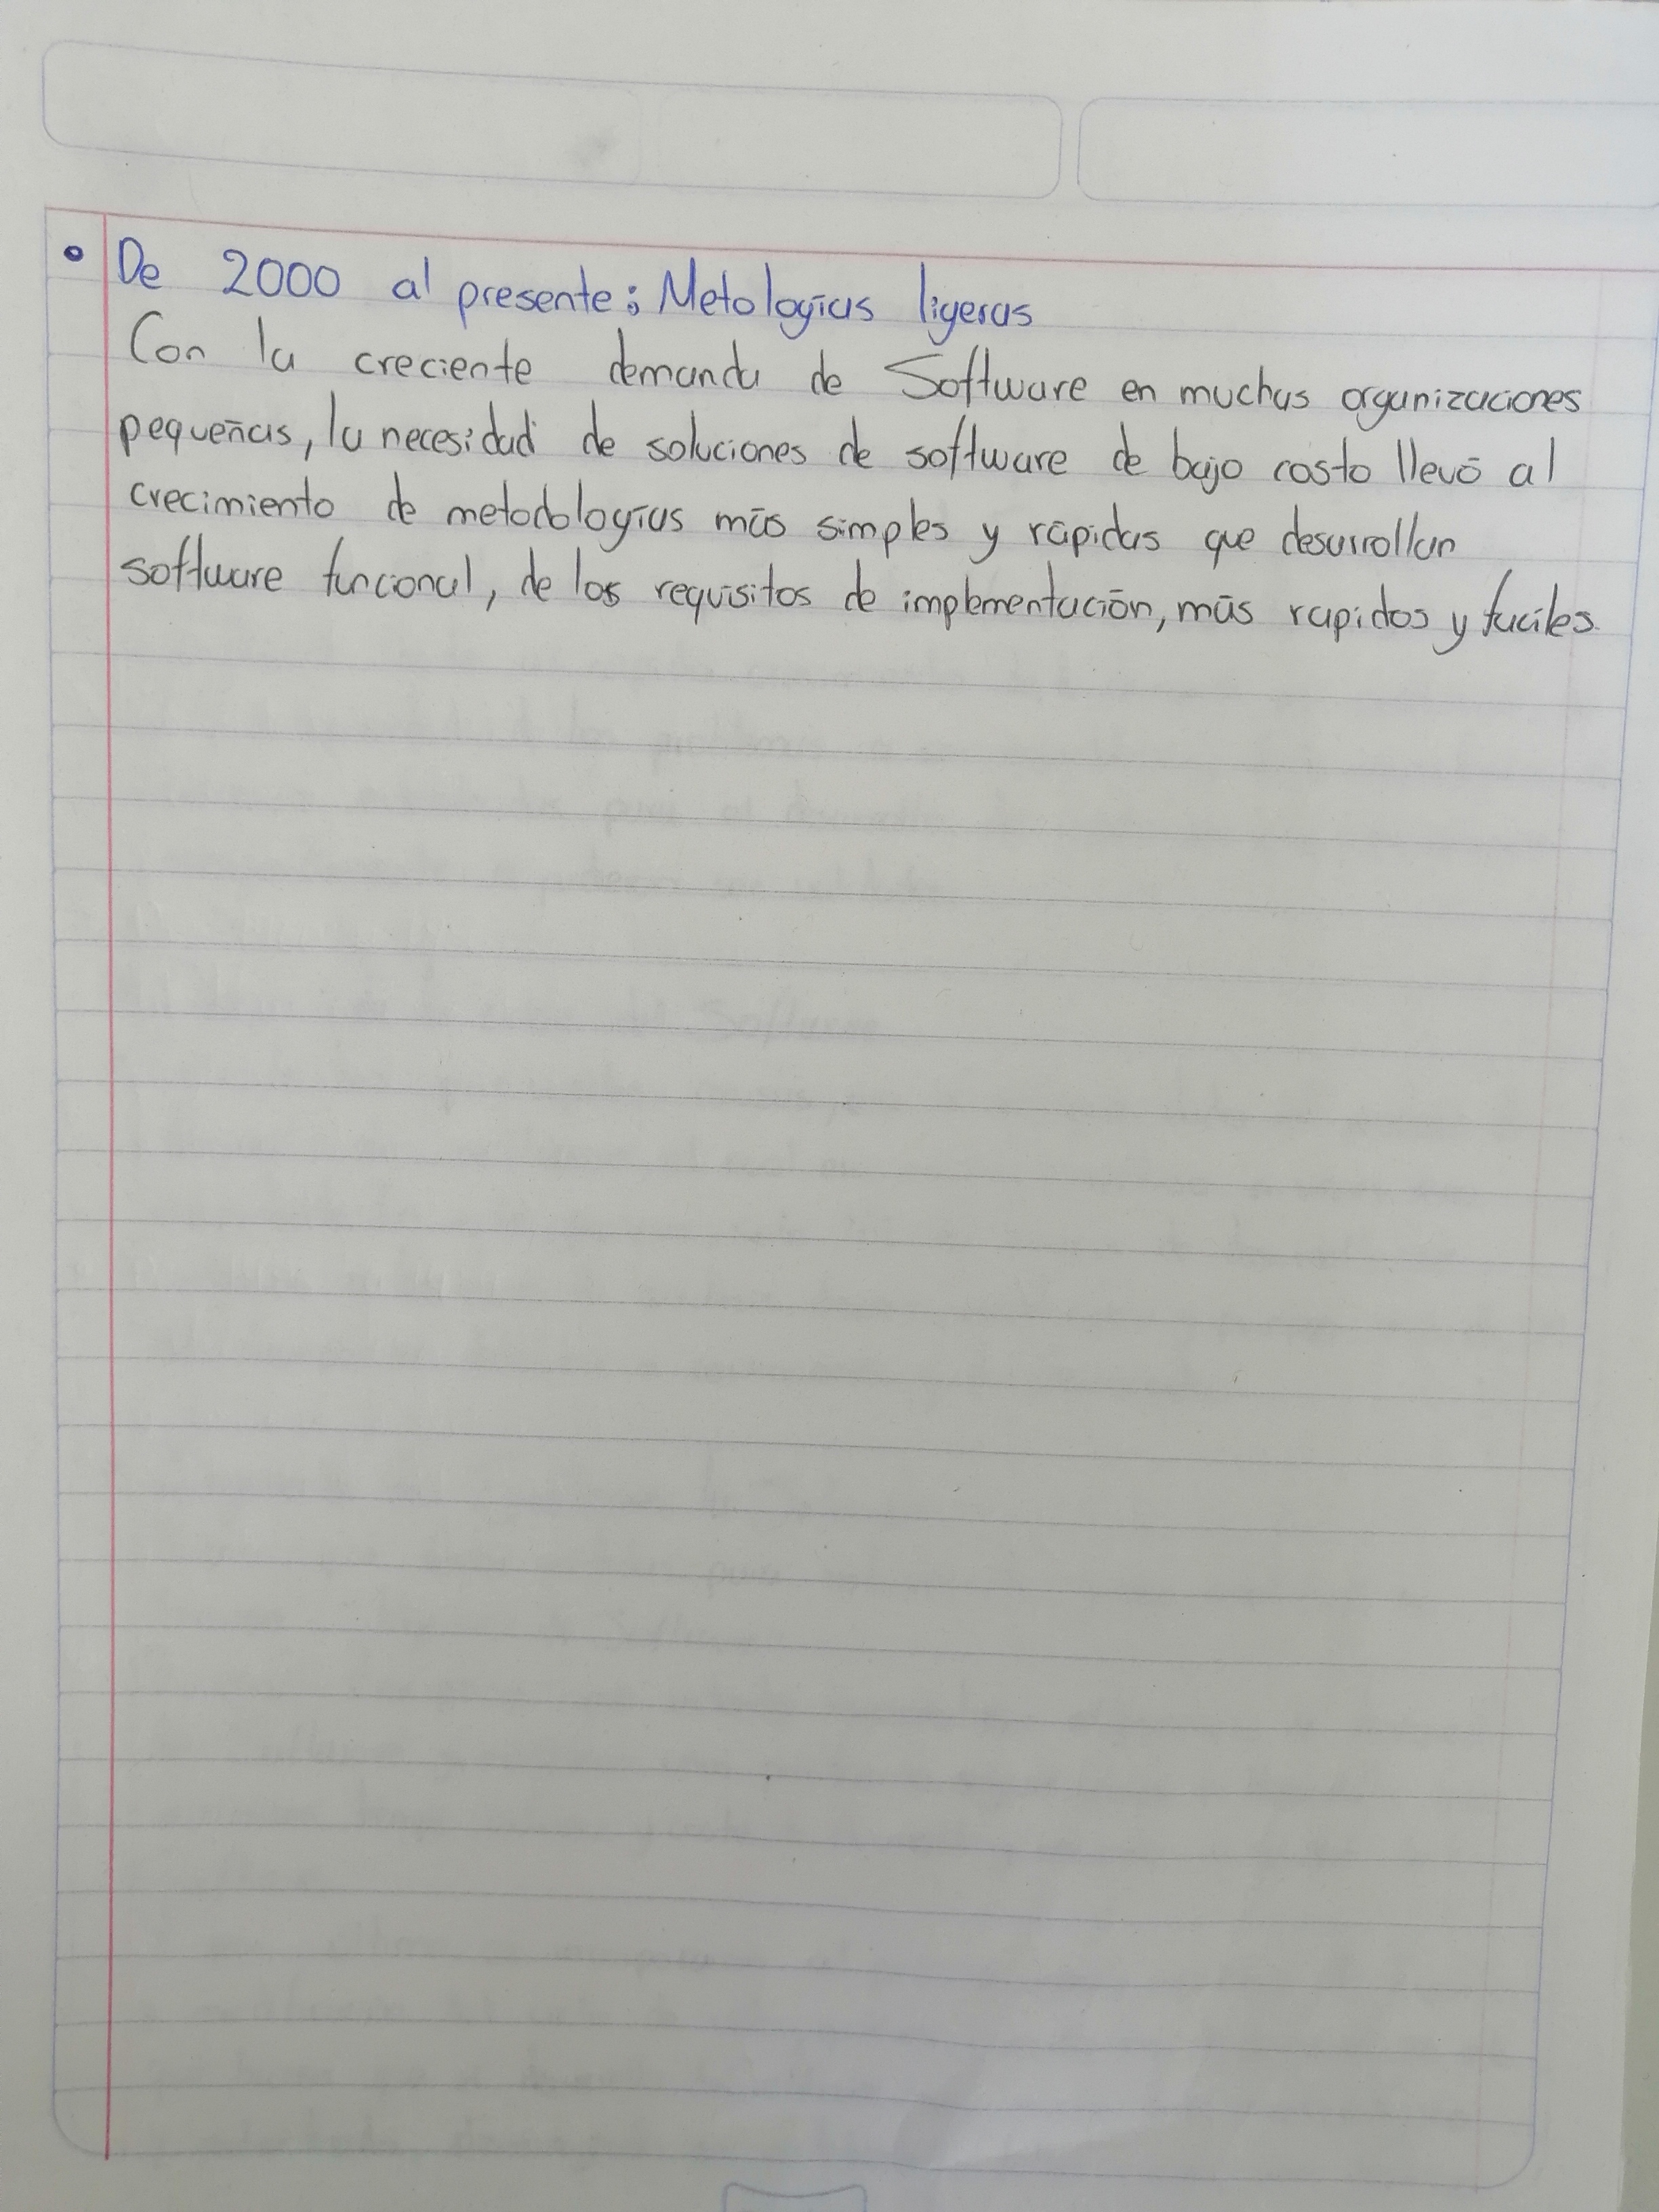 • De 2000 al presente: Metologías ligeras
Con la creciente demanda de Software en muchas organizaciones
pequeñas, la necesidad de soluciones de software de bajo costo llevó al
crecimiento de metodologías más simples y rápidas que desarrollan
software funcional, de los requisitos de implementación, más rapidos y faciles.